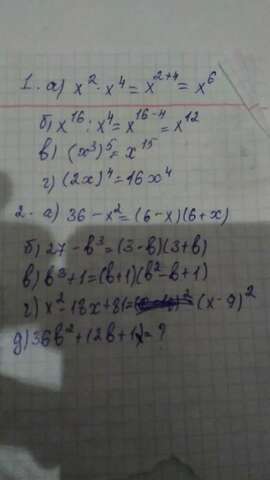 1. а) x² · x⁴ = x²⁺⁴ = x⁶
б) x¹⁶ : x⁴ = x¹⁶⁻⁴ = x¹²
в) (x³)⁵ = x¹⁵
г) (2x)⁴ = 16x⁴
2. а) 36 - x² = (6 - x)(6 + x)
б) 27 - b³ = (3 - b)(3 + b)
в) b³ + 1 = (b + 1)(b² - b + 1)
г) x² - 18x + 81 = (x - 9)²
д) 36b² + 12b + 1 = ?